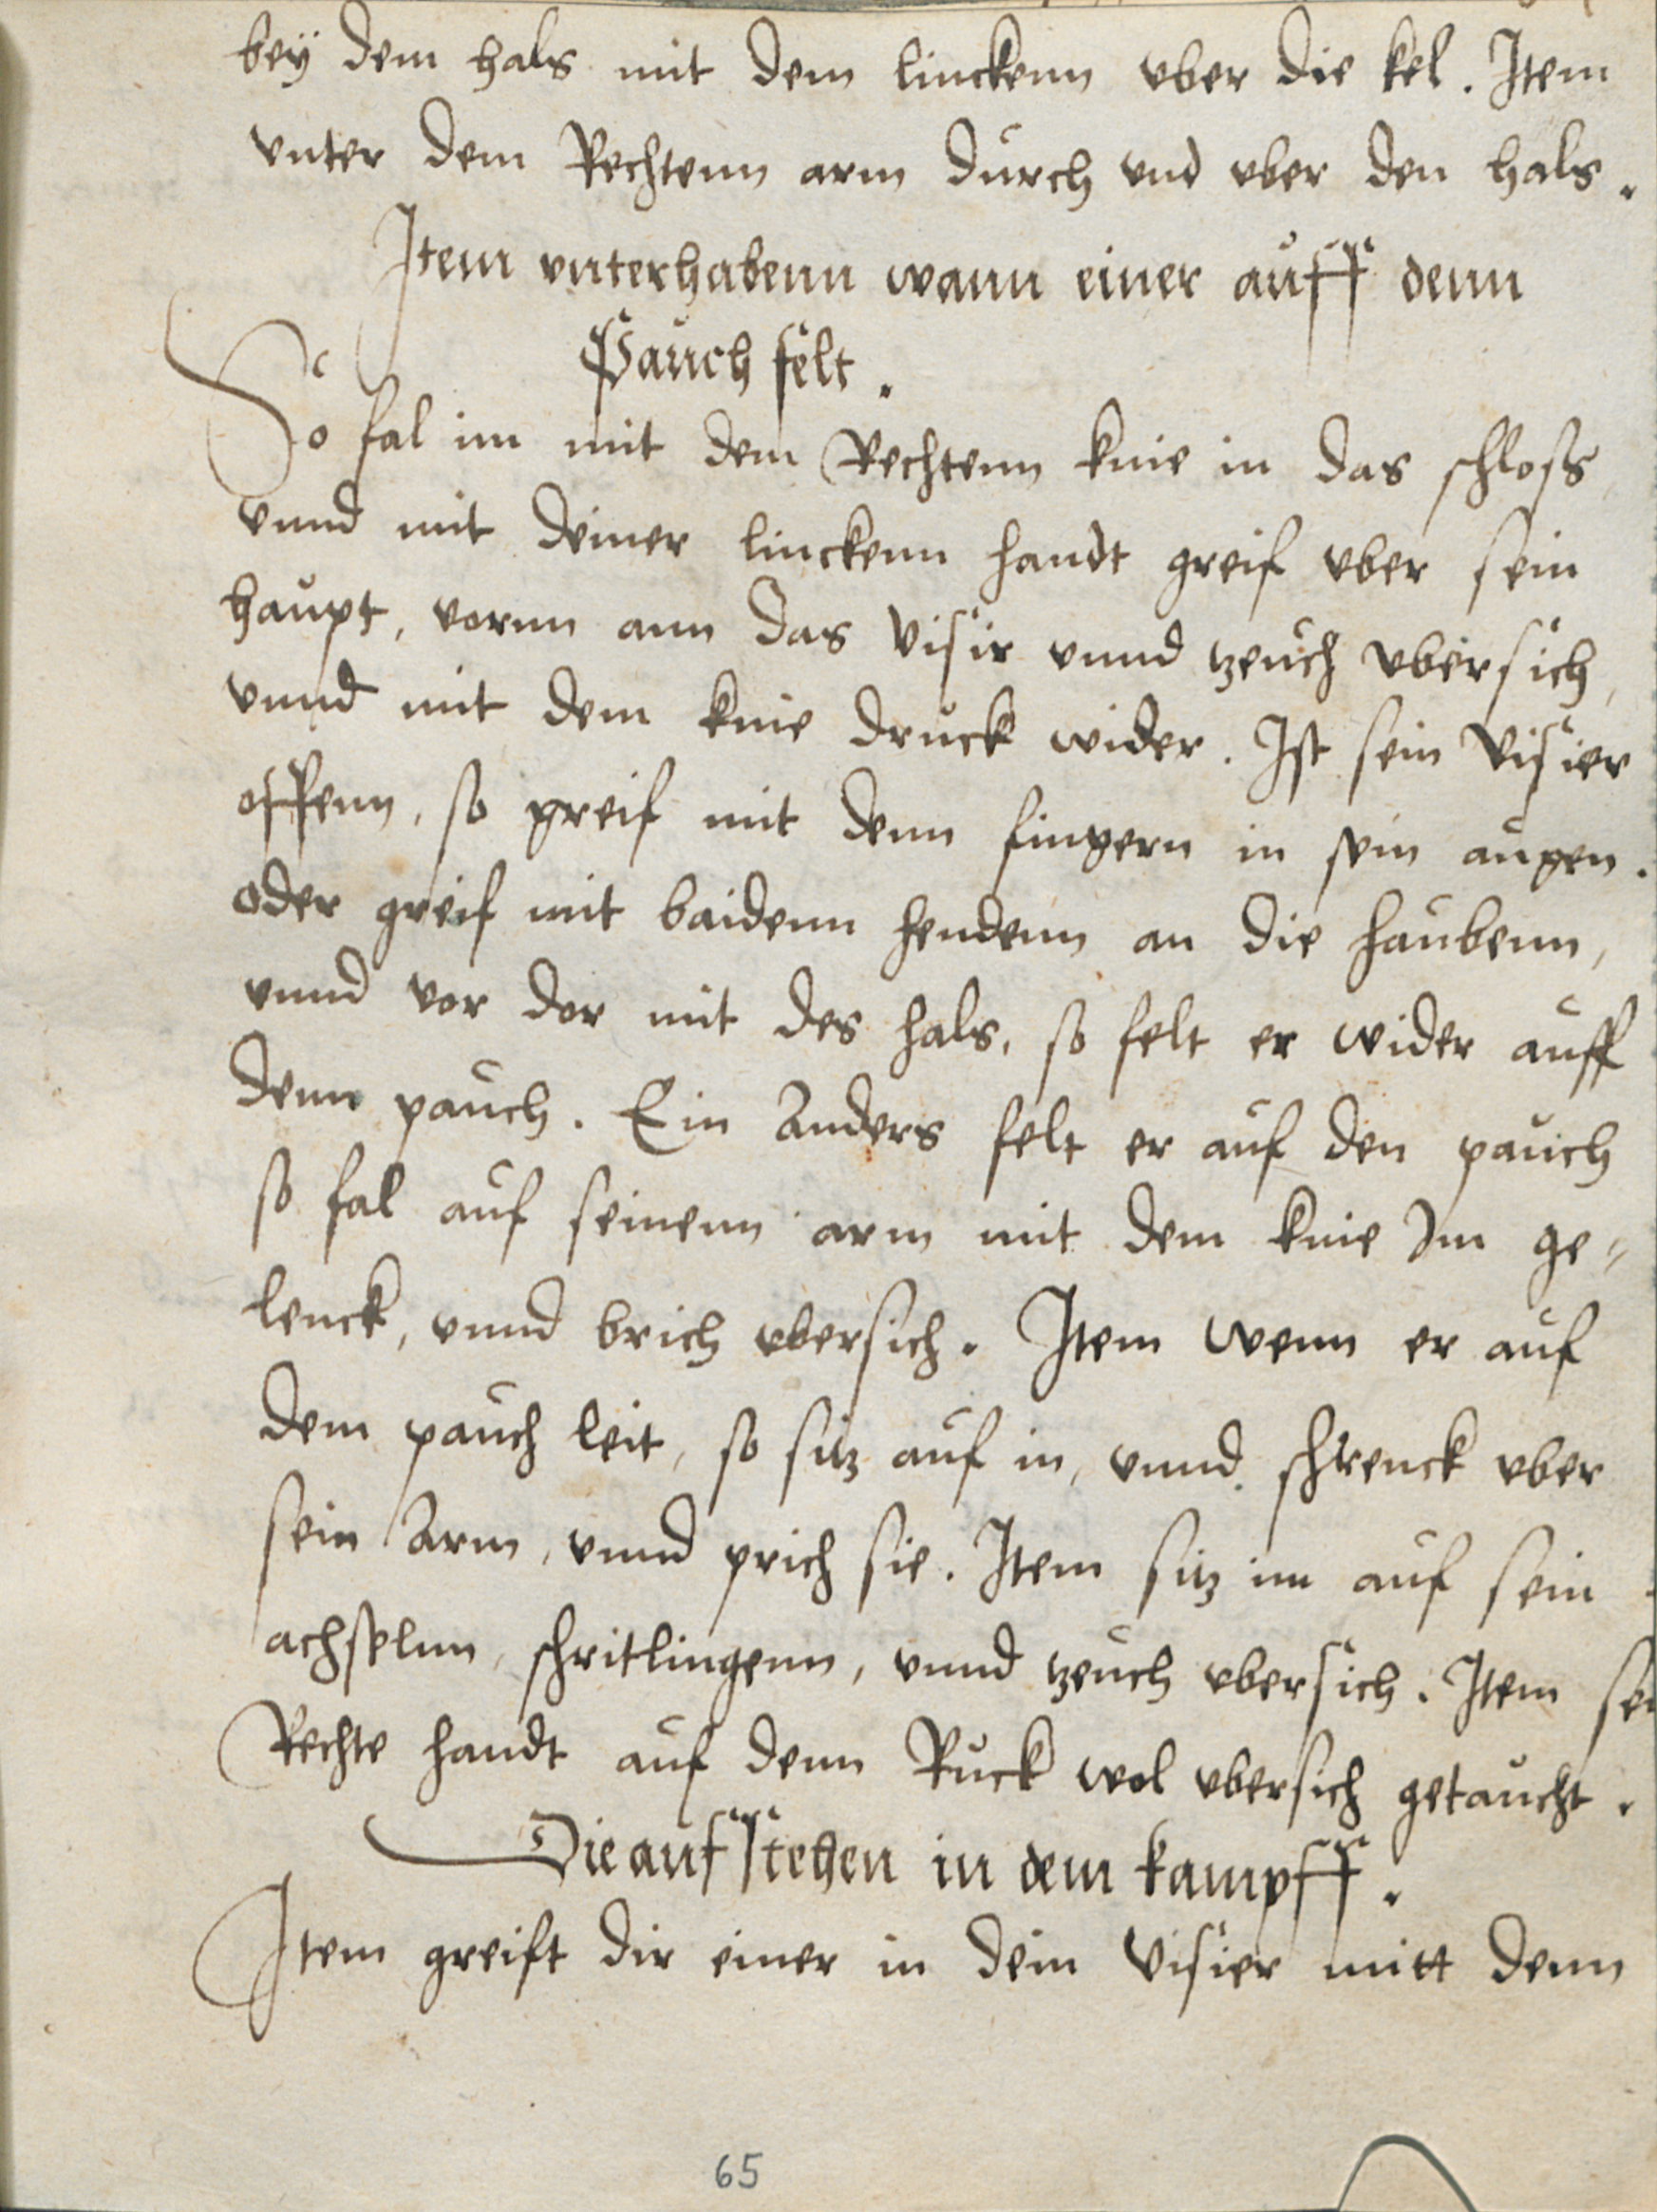 beÿ dem hals mit dem linckenn vber die kel. Item
vnter dem Rechtenn arm durch vnd vber den hals.
Item vnterhabenn wann einer auff denn
Pauch felt.
So fal im mit dem Rechtenn knie in das schloß
vnnd mit deiner linckenn handt greif vber sein
haupt, vornn ann das visir vnnd tzeuch vbersich,
vnnd mit dem knie druck wider. Ist sein visier
offenn, so greif mit denn fingern in sein augen.
oder greif mit baidenn hendenn an die haubenn,
vnnd vor der mit des hals, so felt er wider auff
denn pauch. Ein Anders felt er auf den pauch
so fal auf seinenn arm mit dem knie Im ge-
lenck, vnnd brich vbersich. Item wenn er auf
dem pauch leit, so sitz auf in, vnnd schrenck vber
sein Arm, vnnd prich sie. Item sitz im auf sein
achßelnn, schritlingenn, vnnd tzeuch vbersich. Item
Rechte handt auf denn Ruck wol vbersich getaucht.
Die aufstehen in dem kampff.
Item greift dir einer in dein visier mitt denn
65